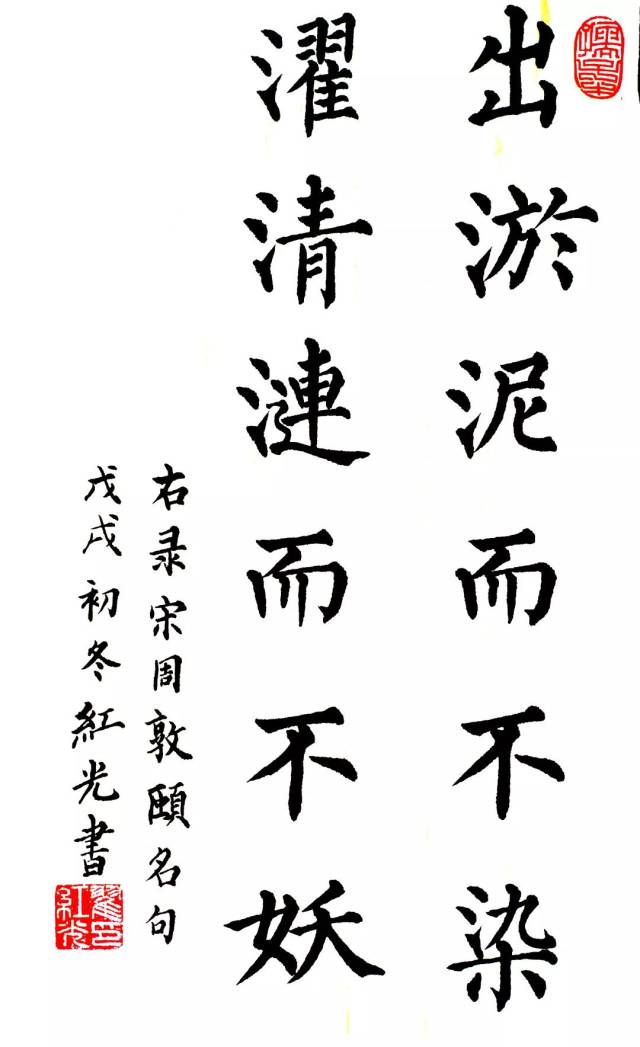 出淤泥而不染
濯清漣而不妖
右录宋周敦頤名句
戊戌初冬紅光書